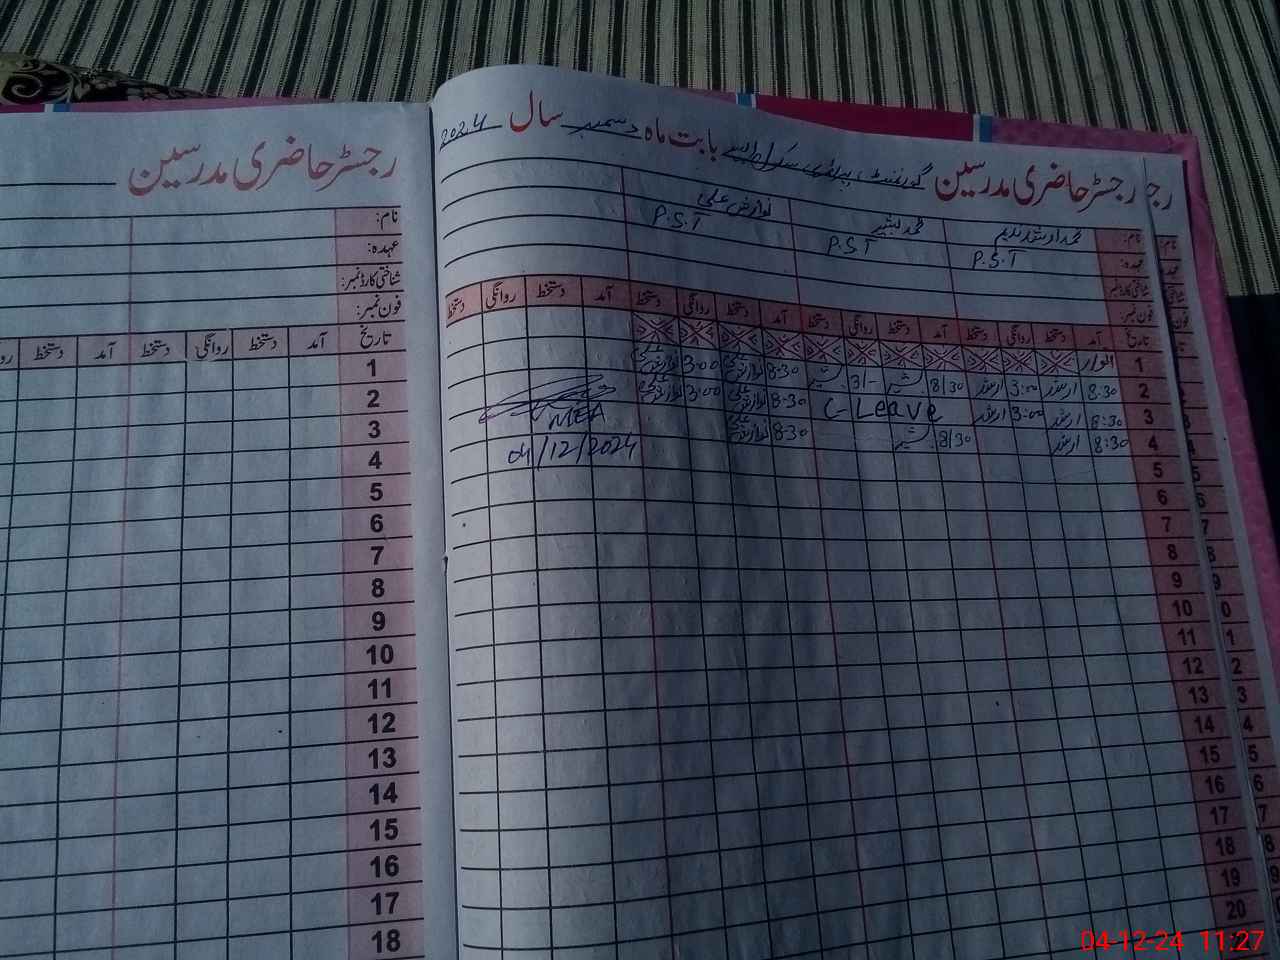 رجسٹر حاضری مدرسین گورنمنٹ پرائمری سکول بابت ماہ دسمبر سال 2024
نام: محمد ارشد ندیم محمد بشیر نوازش علی
عہدہ: P.S.T P.S.T P.S.T
شناختی کارڈ نمبر:
فون نمبر:
تاریخ آمد دستخط روانگی دستخط آمد دستخط روانگی دستخط آمد دستخط روانگی دستخط آمد دستخط روانگی دستخط
1 اتوار
2 8:30 ارشد 3:00 ارشد 8/30 بشیر 3/- بشیر 8:30 نوازش علی 3:00 نوازش علی
3 8:30 ارشد 3:00 ارشد C-Leave 8:30 نوازش علی 3:00 نوازش علی
4 8:30 ارشد 8/30 بشیر 8:30 نوازش علی
MEA
04/12/2024
5
6
7
8
9
10
11
12
13
14
15
16
17
18
19
20
رجسٹر حاضری مدرسین
نام:
عہدہ:
شناختی کارڈ نمبر:
فون نمبر:
تاریخ آمد دستخط روانگی دستخط آمد دستخط
1
2
3
4
5
6
7
8
9
10
11
12
13
14
15
16
17
18
04-12-24 11:27